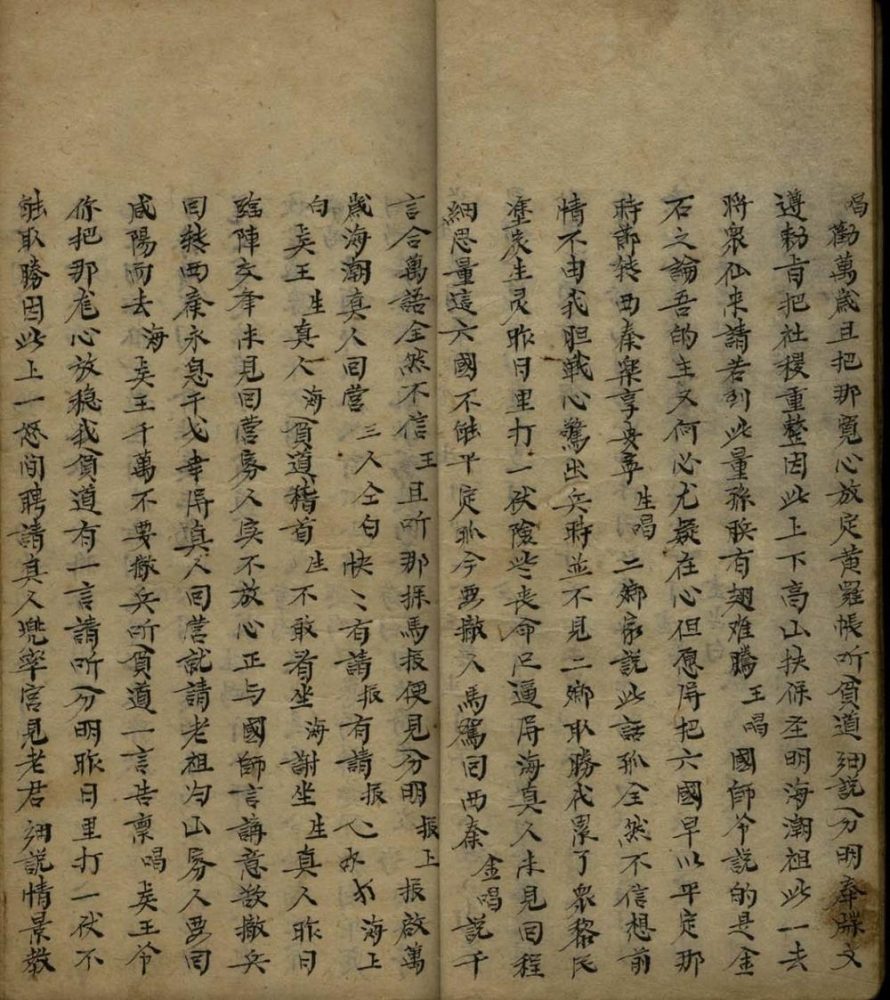 唱 勸萬歲且把那寬心放定黃羅帳听貧道細說分明奉牒文
遵勅旨把社稷重整因此上下高山扶保圣明海潮祖此一去
將衆仙来請若到此量孫臏有翅难騰 王唱 國師爷說的是金
石之論吾的主又何必尤疑在心但愿得把六國早以平定那
時節轉西秦樂享安享 生唱 二卿家說此話孤全然不信想前
情不由我胆戰心驚出兵時並不見二卿取勝我累了衆黎民
塗炭生灵昨日里打一伏險些丧命只逼得海真人未見回程
細思量這六國不能平定孤今要撤人馬駕回西秦 金唱 說千
言合萬語全然不信 王 且听那探馬振便見分明 振上 振啟萬
歲海潮真人回营 三人仝白 快〻有請 振 有請 振 海上
白 吴王 生 真人 海 貧道稽首 生 不敢看坐 海 謝坐 生 真人昨日
臨陣交奔未見回营寡人实不放心正与國師言講意欲撤兵
回轉西秦永息干戈幸得真人回营就請老祖为山寡人要回
咸陽而去 海 吴王千萬不要撤兵听貧道一言告禀 唱 吴王爷
你把那龙心放稳我貧道有一言請听分明昨日里打一伏不
能取勝因此上一怒间聘請真人兜率宫見老君細說情景教